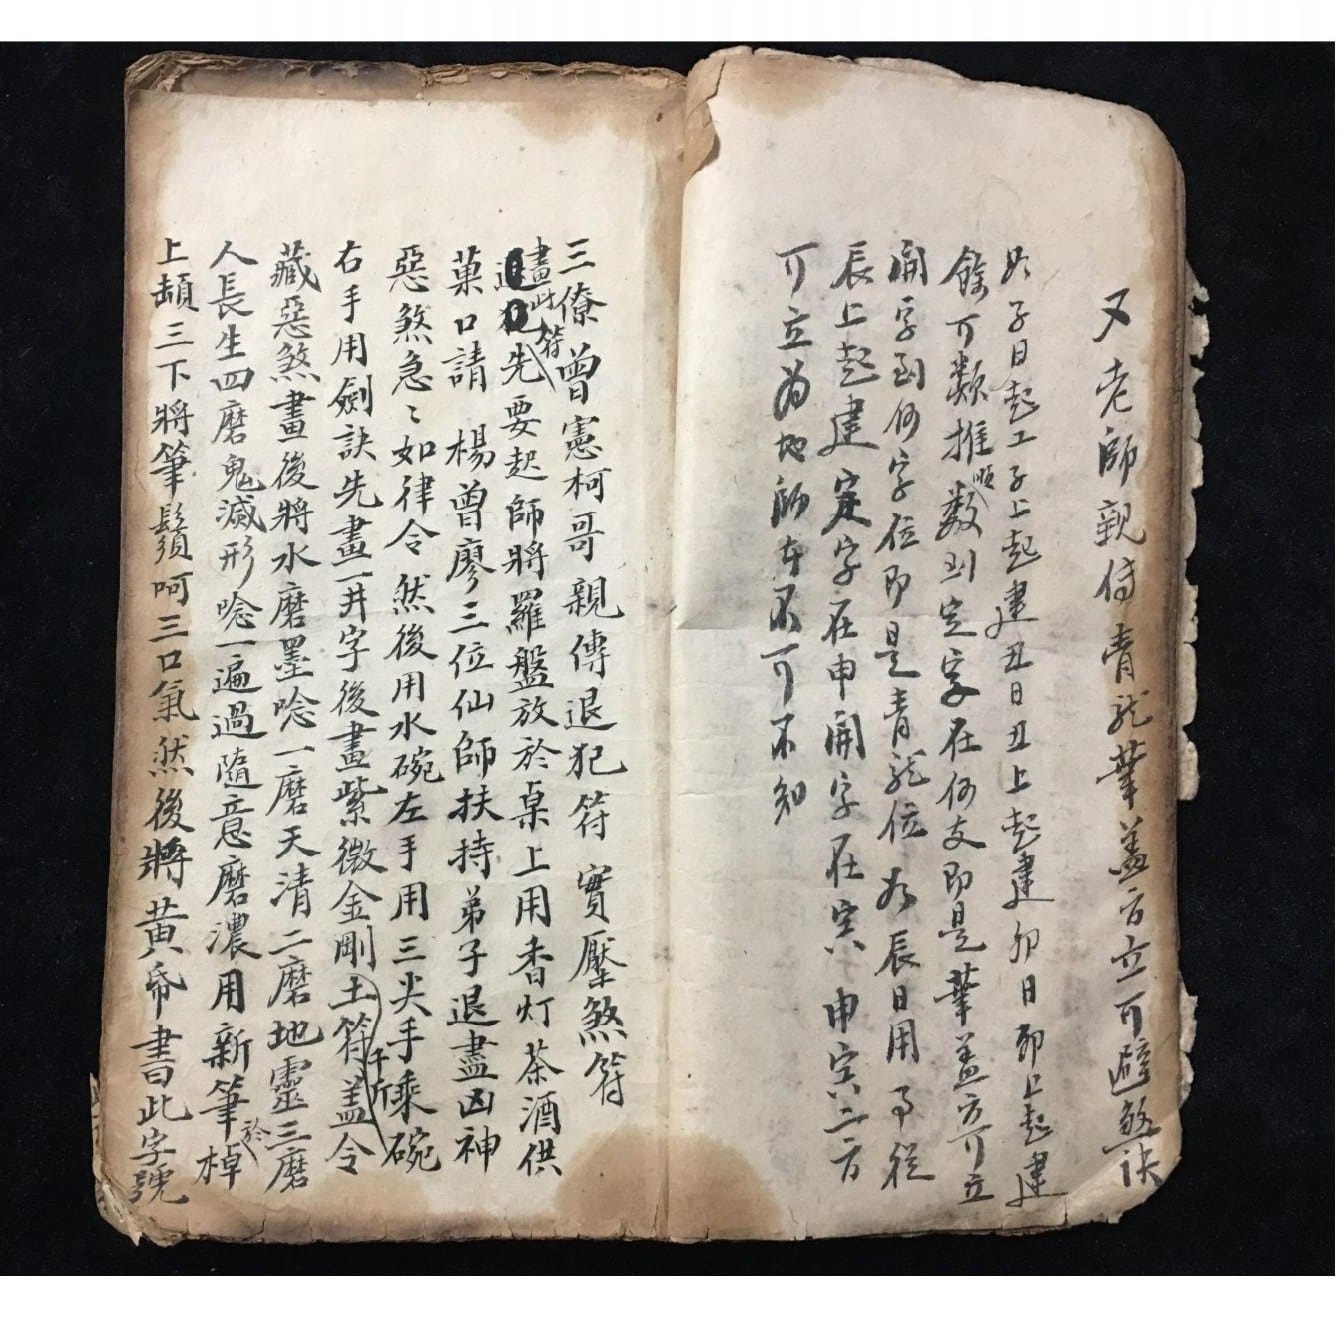 又老師親传青龙華盖方立可避煞诀
如子日起工子上起建丑日丑上起建卯日卯上起建
餘可類推順数到定字在何支即是華盖方可立
開字到何字位即是青龙位如辰日用事從
辰上起建定字在申開字在寅申寅二方
可立为地師者不可不知
三僚曾憲柯哥親傳退犯符實壓煞符
畫此符先要起師將羅盤放於桌上用香灯茶酒供
菓口請楊曾廖三位仙師扶持弟子退盡凶神
惡煞急〻如律令然後用水碗左手用三尖手乘碗
右手用劍訣先畫一井字後畫紫微金剛土符盖千斤令
藏惡煞畫後將水磨墨唸一磨天清二磨地靈三磨
人長生四磨鬼減形唸一遍過隨意磨濃用新筆於棹
上頓三下將筆鬚呵三口氣然後將黄帋書此字號